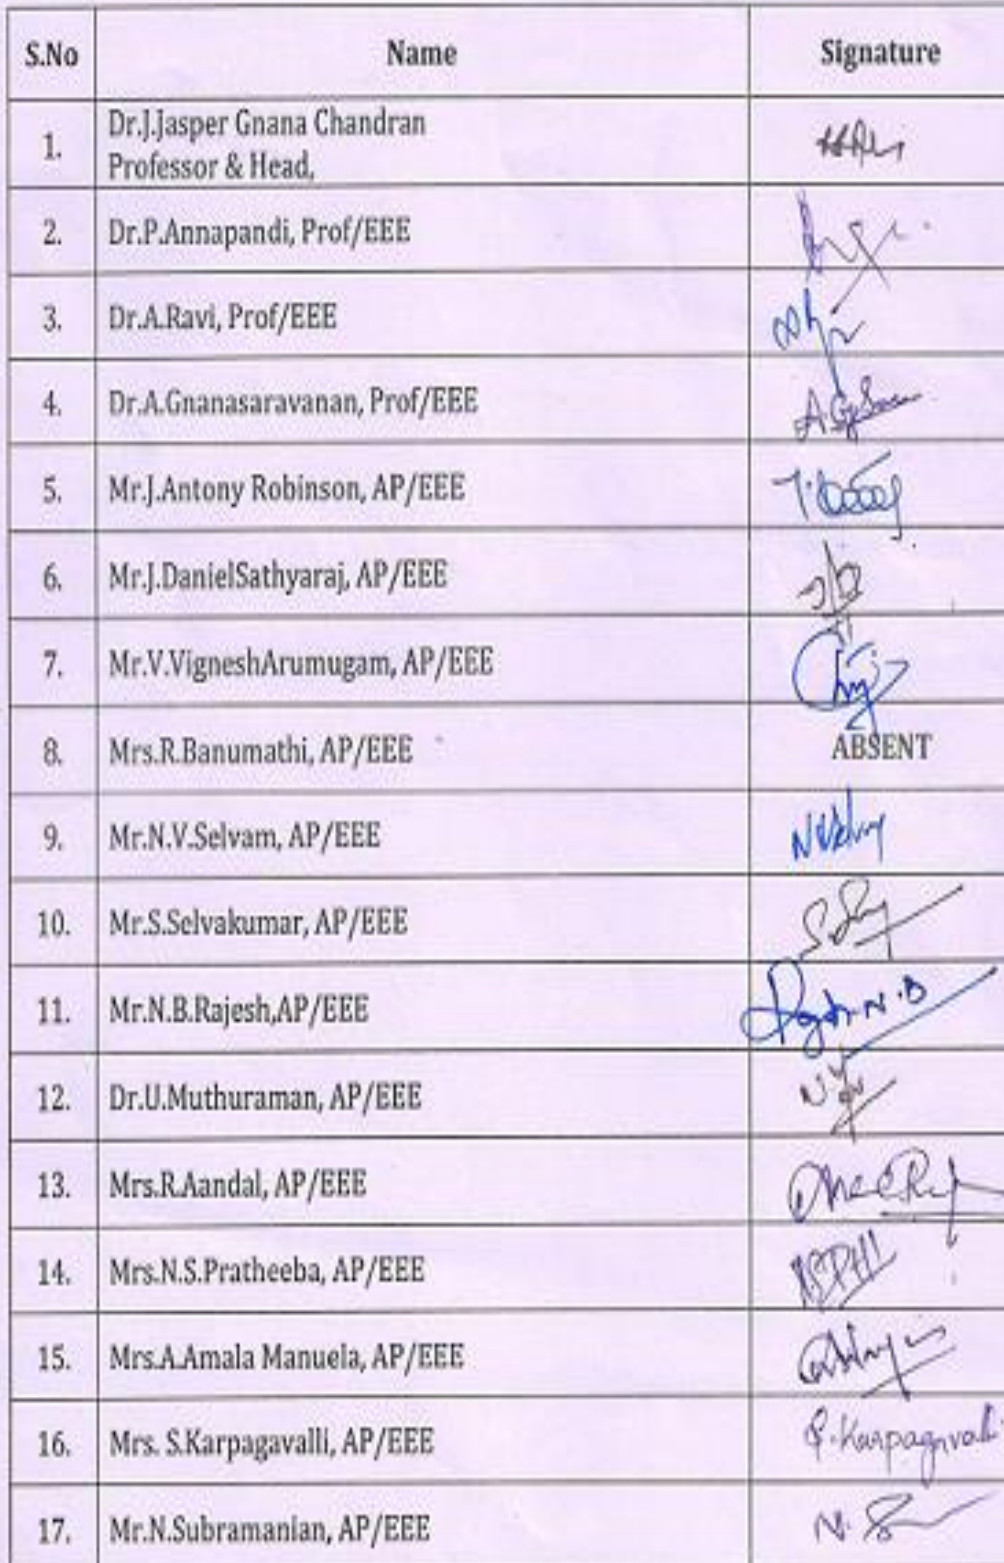 S.No Name Signature
1. Dr.J.Jasper Gnana Chandran
Professor & Head,
2. Dr.P.Annapandi, Prof/EEE
3. Dr.A.Ravi, Prof/EEE
4. Dr.A.Gnanasaravanan, Prof/EEE
5. Mr.J.Antony Robinson, AP/EEE
6. Mr.J.DanielSathyaraj, AP/EEE
7. Mr.V.VigneshArumugam, AP/EEE
8. Mrs.R.Banumathi, AP/EEE ABSENT
9. Mr.N.V.Selvam, AP/EEE
10. Mr.S.Selvakumar, AP/EEE
11. Mr.N.B.Rajesh,AP/EEE
12. Dr.U.Muthuraman, AP/EEE
13. Mrs.R.Aandal, AP/EEE
14. Mrs.N.S.Pratheeba, AP/EEE
15. Mrs.A.Amala Manuela, AP/EEE
16. Mrs. S.Karpagavalli, AP/EEE
17. Mr.N.Subramanian, AP/EEE